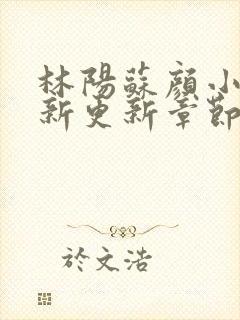 林陽蘇顏小
新更新章節
於文浩